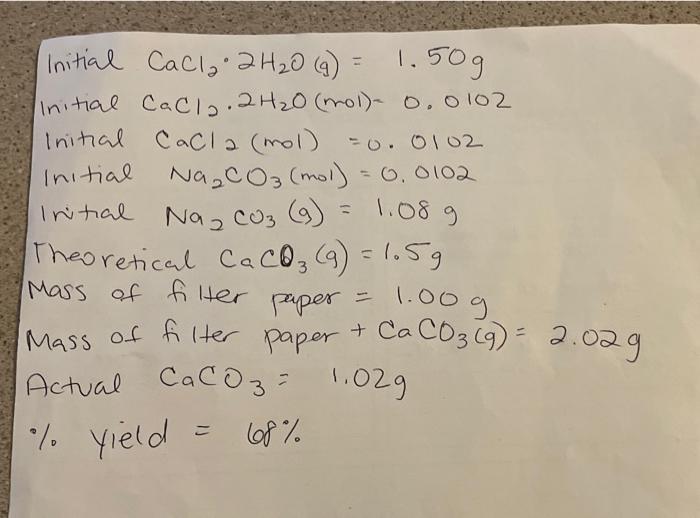 Initial CaCl₂·2H₂O (g) = 1.50g
Initial CaCl₂.2H₂O (mol)- 0.0102
Initial CaCl2 (mol) =0.0102
Initial Na₂CO₃ (mol) = 0.0102
Initial Na₂CO₃ (g) = 1.08 g
Theoretical CaCO₃ (g) = 1.5g
Mass of filter paper = 1.00g
Mass of filter paper + CaCO₃(g) = 2.02g
Actual CaCO₃ = 1.02g
% yield = 68%